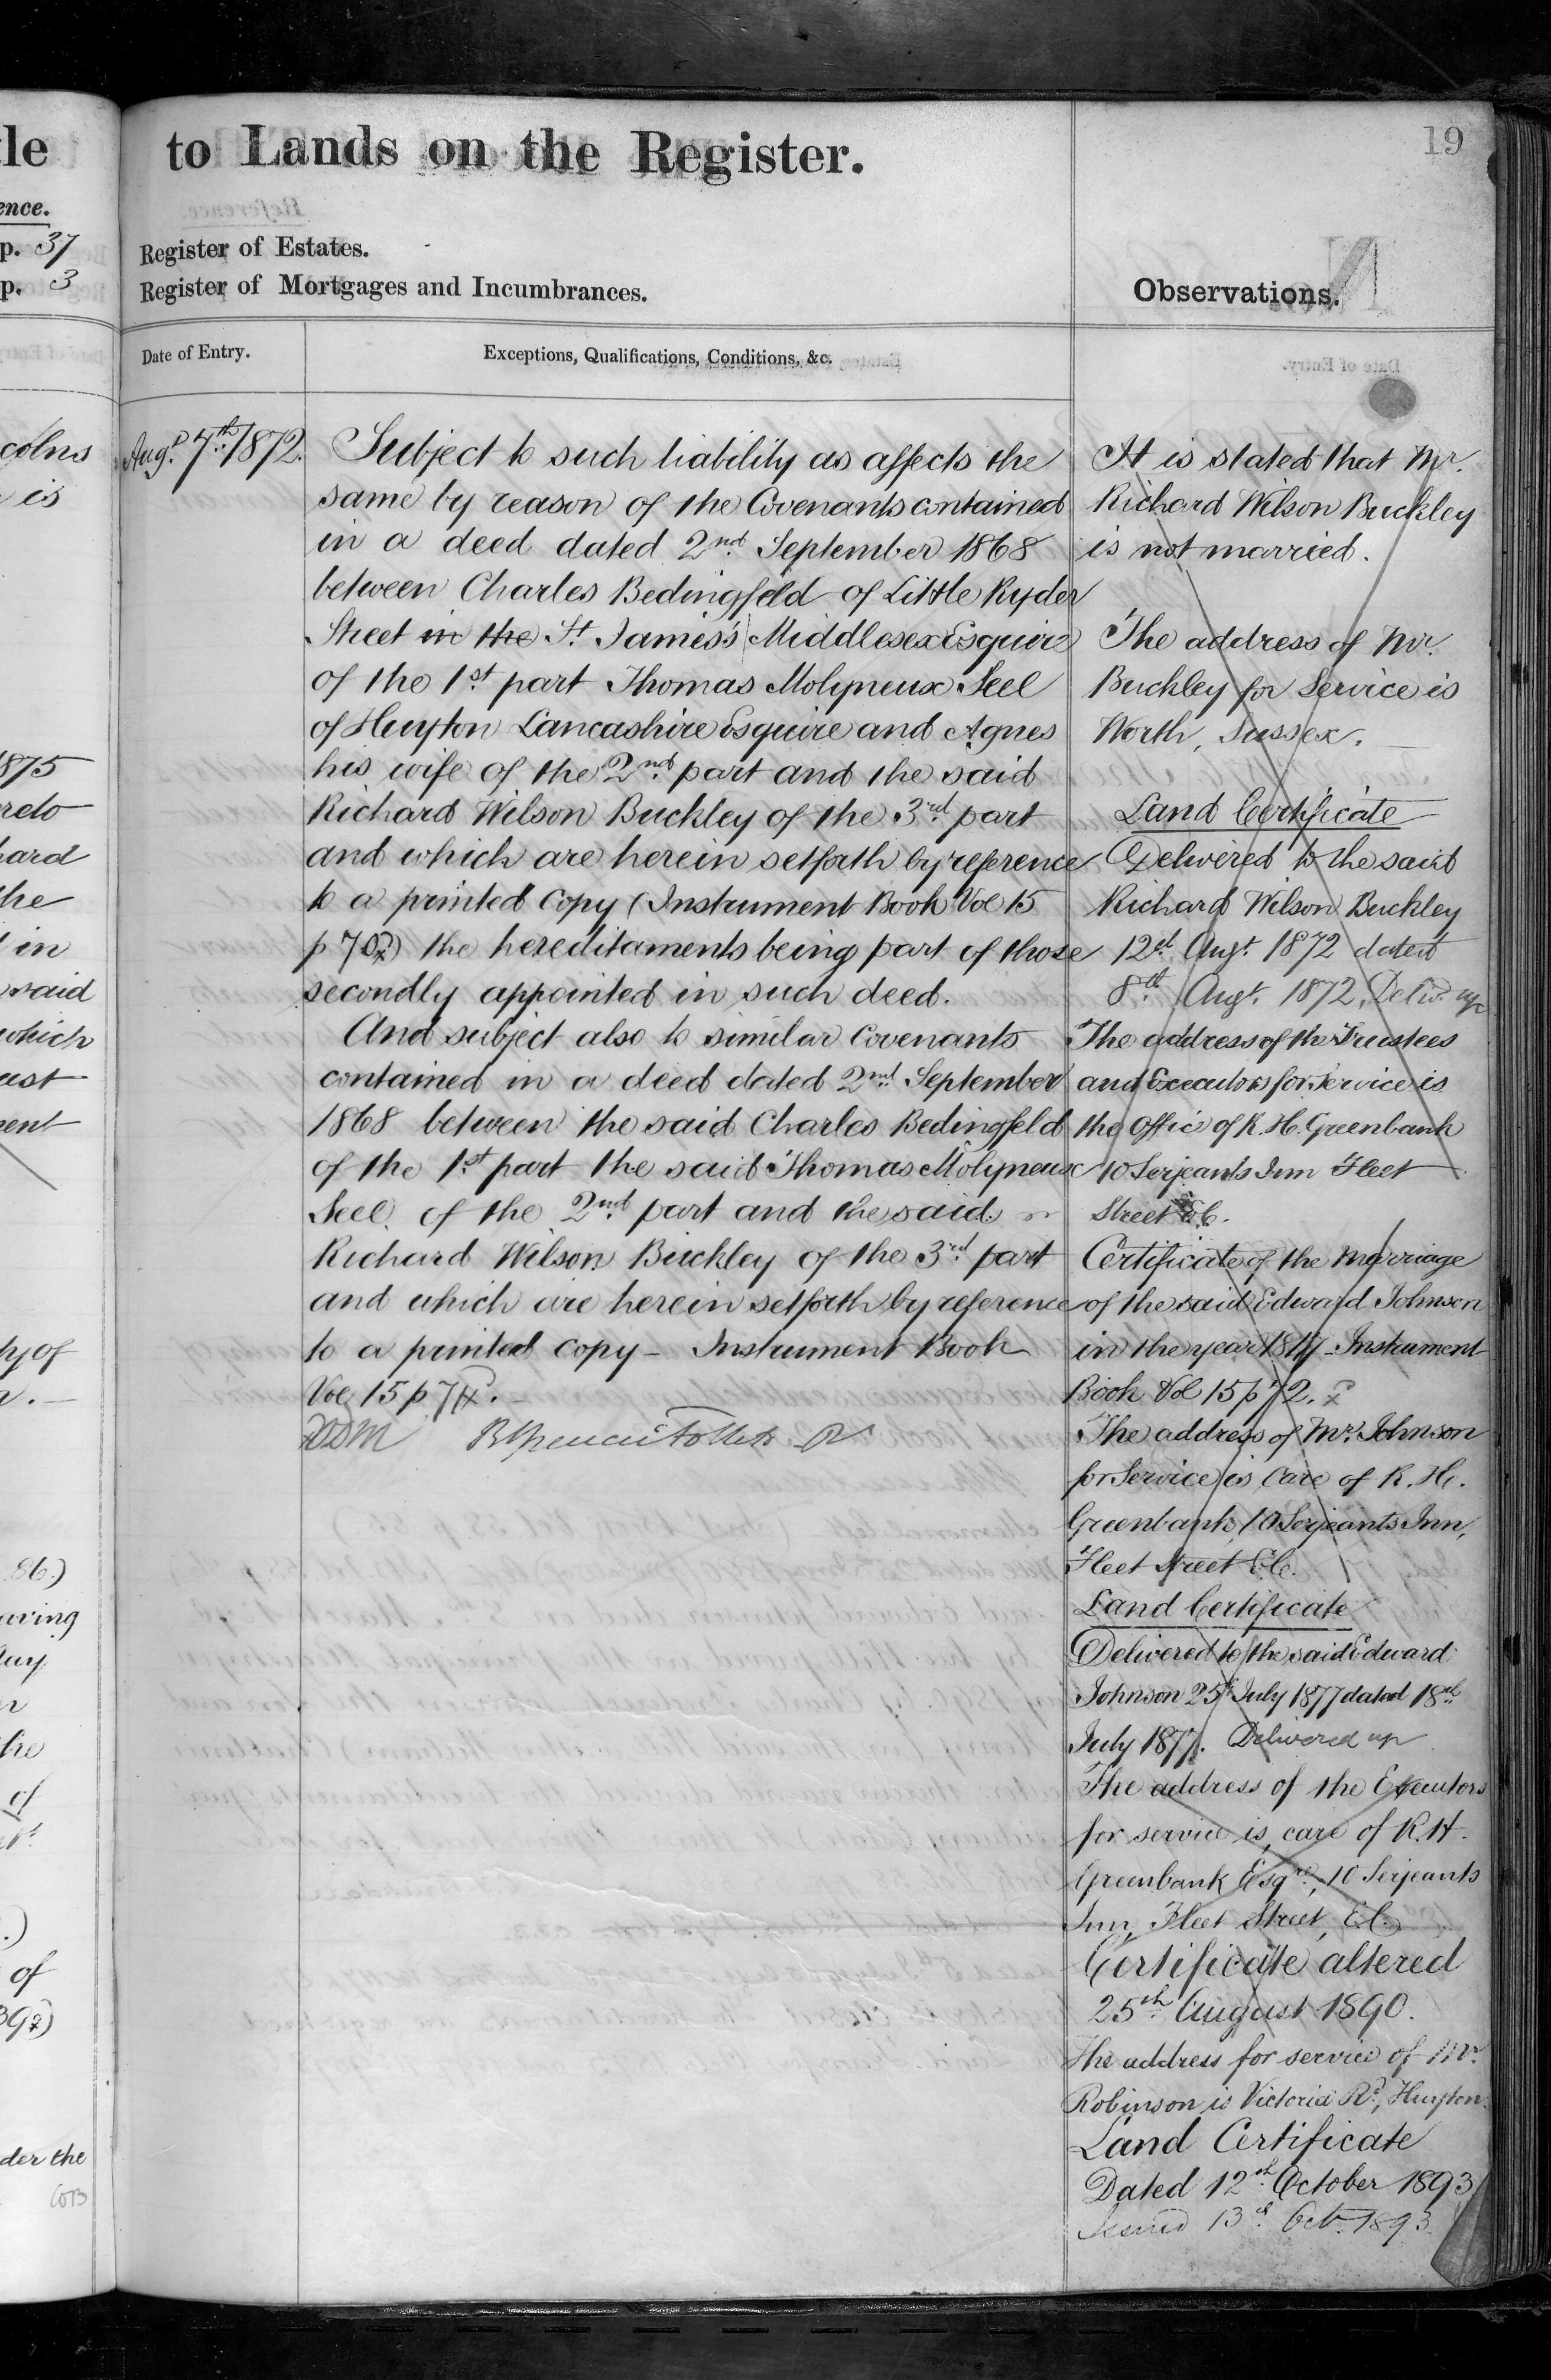 tle
ence.
p. 37
p. 3
colns
is
1875
reto
hard
the
in
said
which
ast
ment
of
86.)
the
of
of
der the
to Lands on the Register.
19
Register of Estates.
Register of Mortgages and Incumbrances.
Observations.
Date of Entry.
Exceptions, Qualifications, Conditions, &c.
Augt. 7th. 1872.
Subject to such liability as affects the
same by reason of the Covenants contained
in a deed dated 2nd. September 1868
between Charles Bedingfeld of Little Ryder
Street in the St. James's Middlesex Esquire
of the 1st. part Thomas Molyneux Seel
of Huyton Lancashire Esquire and Agnes
his wife of the 2nd. part and the said
Richard Wilson Buckley of the 3rd. part
and which are herein setforth by reference
to a printed Copy (Instrument Book Vol 15
p 70) the hereditaments being part of those
secondly appointed in such deed.
And subject also to similar Covenants
contained in a deed dated 2nd. September
1868 between the said Charles Bedingfeld
of the 1st. part the said Thomas Molyneux
Seel of the 2nd part and the said
Richard Wilson Buckley of the 3rd. part
and which are herein setforth by reference
to a printed Copy - Instrument Book
Vol 15 p 71.
It is stated that Mr.
Richard Wilson Buckley
is not married.
The address of Mr.
Buckley for Service is
Worth, Sussex.
Land Certificate
Delivered to the said
Richard Wilson Buckley
12th Augt. 1872 dated
8th. Augt. 1872. Delivd. up
The address of the Trustees
and Executors for Service is
the Office of R. H. Greenbank
10 Serjeants Inn Fleet
Street E.C.
Certificate of the Marriage
of the said Edward Johnson
in the year 1817 - Instrument
Book Vol 15 p 72.
The address of Mr. Johnson
for Service is Care of R. H.
Greenbank, 10 Serjeants Inn,
Fleet Street E.C.
Land Certificate
Delivered to the said Edward
Johnson 25th July 1877 dated 18th.
July 1877. Delivered up
The address of the Executors
for service is, care of R. H.
Greenbank Esqre., 10 Serjeants
Inn, Fleet Street, E.C.
Certificate altered
25th. August 1890.
The address for service of Mr.
Robinson is Victoria Rd., Huyton.
Land Certificate
Dated 12th. October 1893
Issued 13th. Oct. 1893.